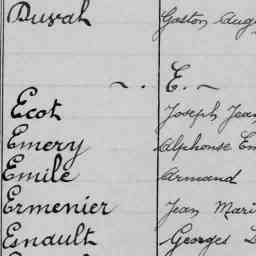 Duval Gaston Aug
~ . E. ~
Ecot Joseph Jean
Emery Alphonse Em
Emile Armand
Ermenier Jean Mari
Esnault Georges